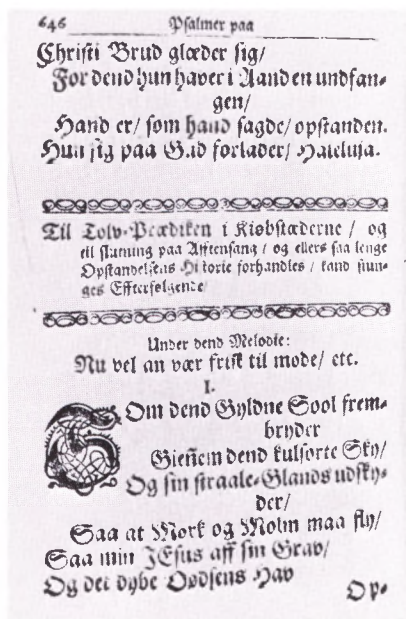 646 Psalmer paa
Christi Brud glæder sig/
For dend hun haver i Aanden undfan-
gen/
Hand er/ som hand sagde/ opstanden.
Hun sig paa Gud forlader/ Haleluja.
Til Tolv-Prædiken i Kiøbstæderne / og
til slutning paa Afftensang / og ellers saa lenge
Opstandelsens Historie forhandles / kand siun-
ges Effterfølgende/
Under dend Melodie:
Nu vel an vær frisk til mode/ etc.
I.
SOm dend Gyldne Sool frem-
bryder
Gienem dend kulsorte Sky/
Og sin straale-Glands udsky-
der/
Saa at Mørk og Molm maa fly/
Saa min JEsus aff sin Grav/
Og det dybe Dødsens Hav
Op-